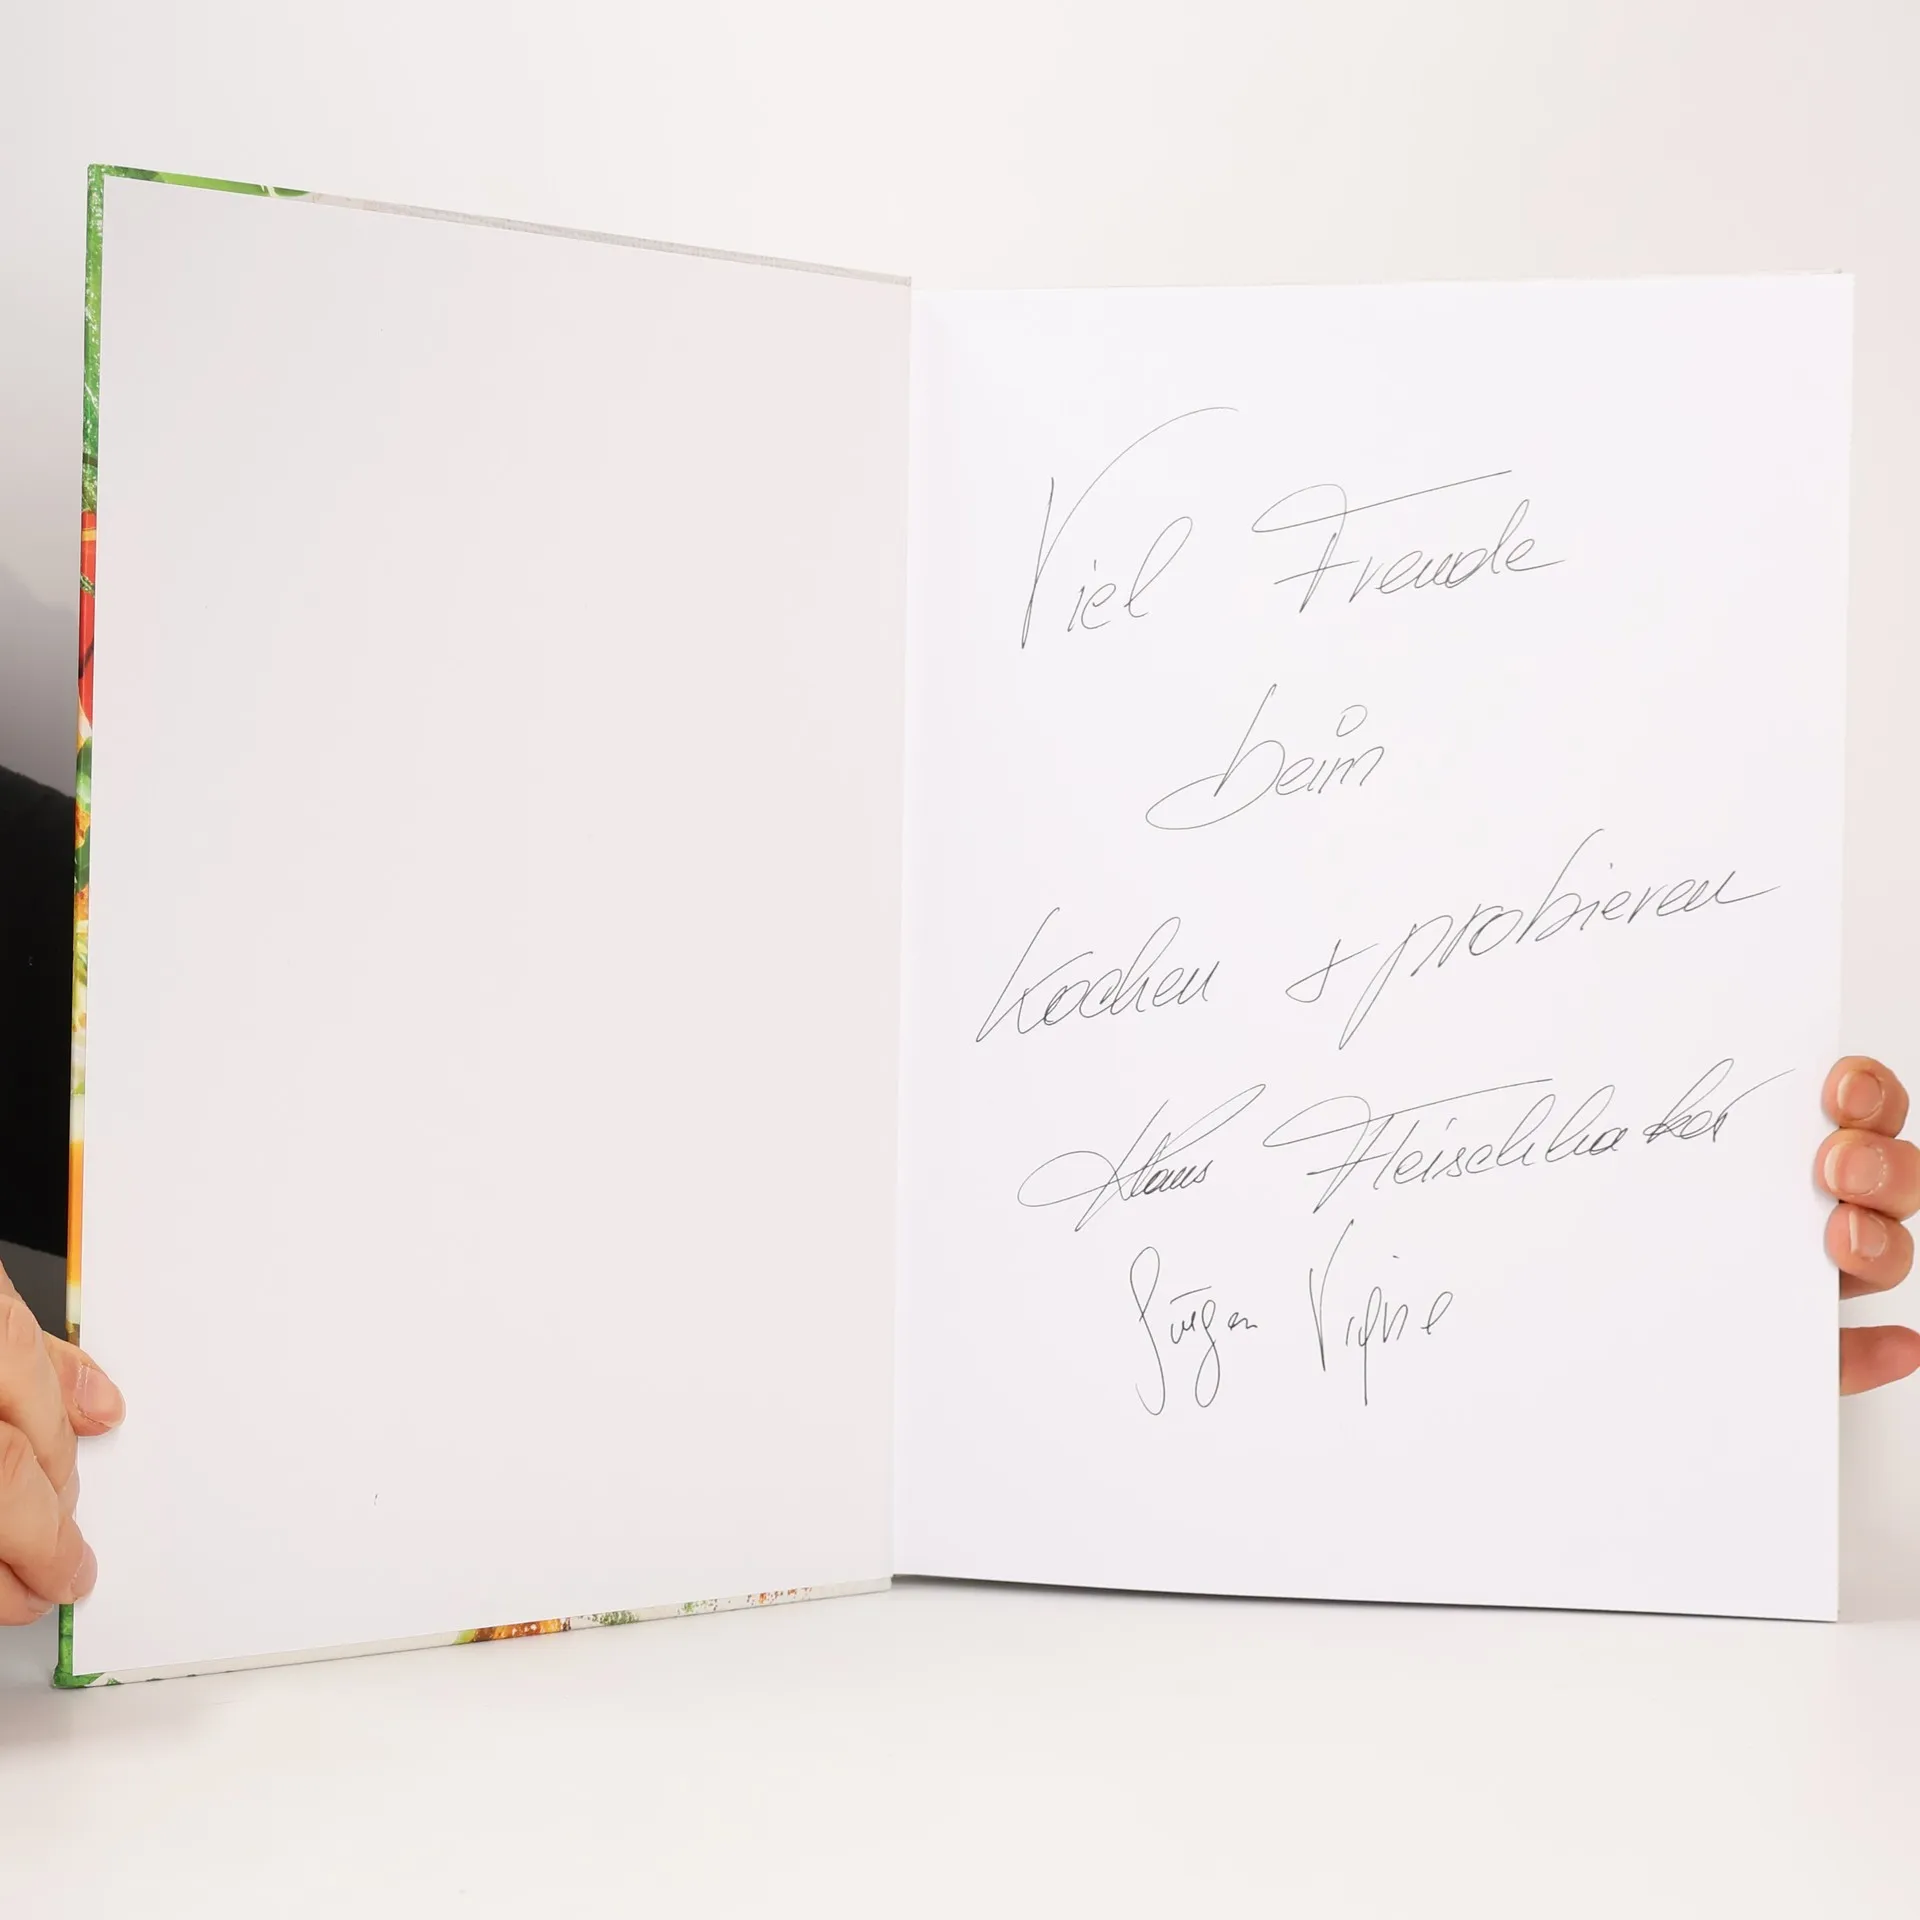 Viel Freude
beim
Kochen + probieren
Klaus Fleischhacker
Jürgen Vigne